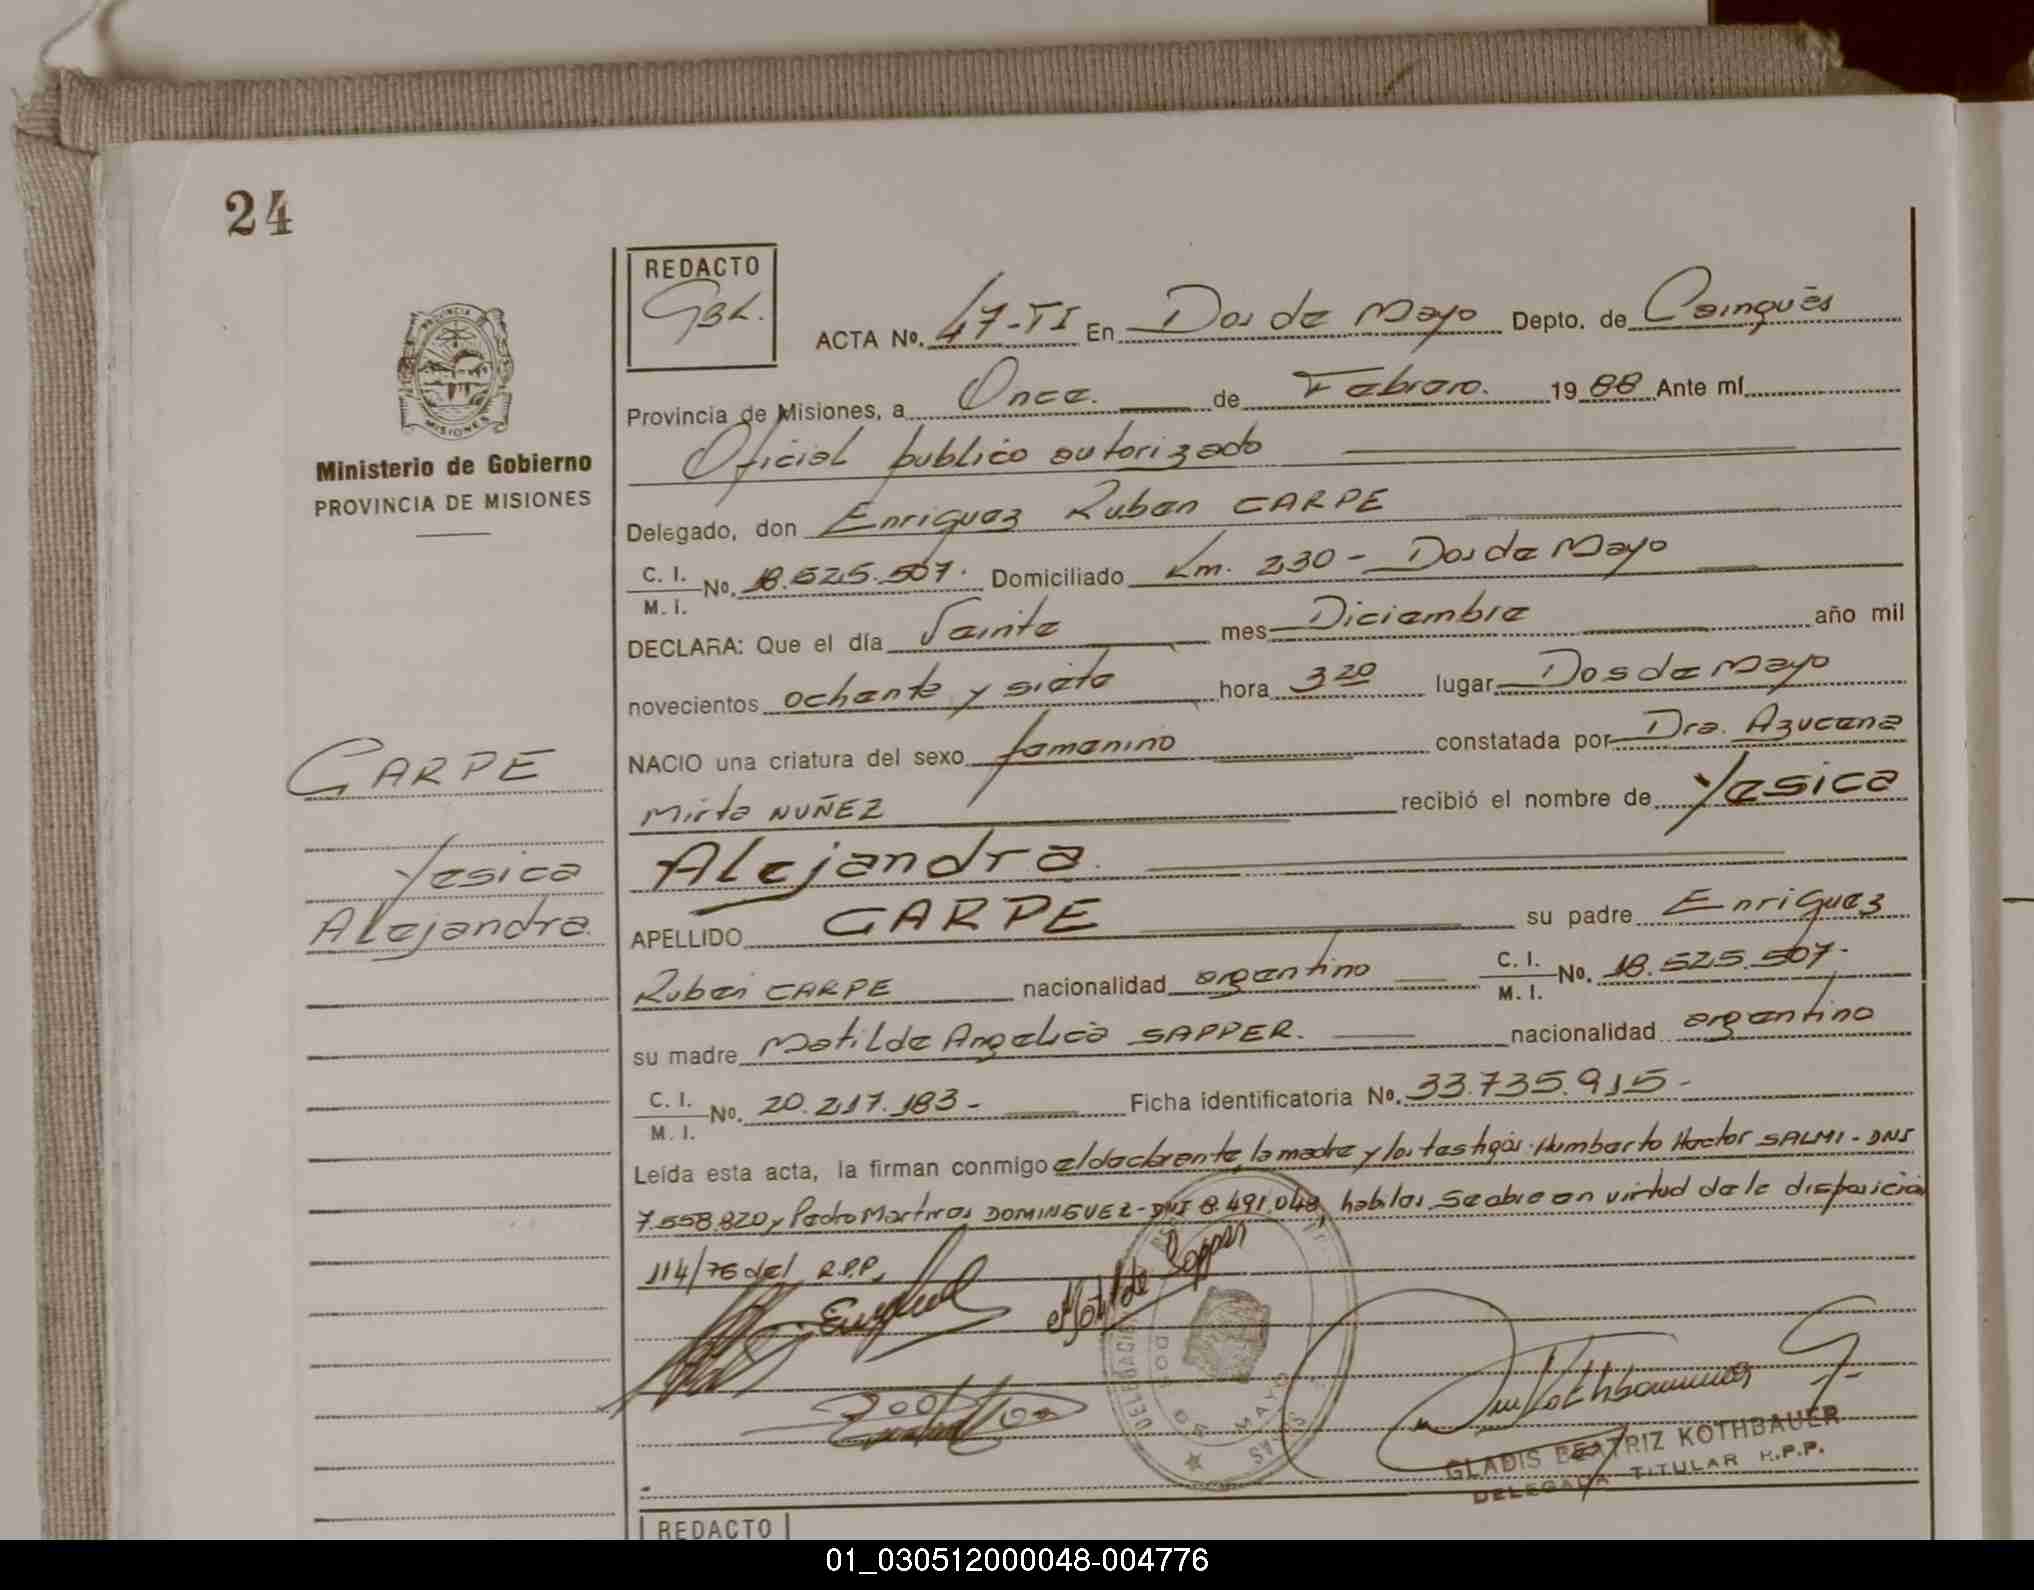 24
REDACTO
GBK.
PROVINCIA DE
MISIONES
Ministerio de Gobierno
PROVINCIA DE MISIONES
ACTA No. 47-TI En Dos de Mayo Depto. de Cainguás
Provincia de Misiones, a Once. de Febrero. 1988 Ante mí
Oficial publico autorizado
Delegado, don Enriquez Ruben CARPE
C. I. M. I. No. 18.525.507. Domiciliado Km. 230 - Dos de Mayo
DECLARA: Que el día Veinte mes Diciembre año mil
novecientos ochenta y siete hora 3 20 lugar Dos de Mayo
NACIO una criatura del sexo femenino constatada por Dra. Azucena
Mirta NUÑEZ recibió el nombre de Yesica
Alejandra.
APELLIDO CARPE su padre Enriquez
Ruben CARPE nacionalidad argentino C. I. M. I. No. 18.525.507.-
su madre Matilde Angelica SAPPER. nacionalidad argentina
C. I. M. I. No. 20.217.183 - Ficha identificatoria No. 33.735.915 -
Leída esta acta, la firman conmigo el declarante, la madre y los testigos: Humberto Hector SALMI - DNI
7.558.820 y Pedro Martires DOMINGUEZ - DNI 8.491.048, habiles. Se abre en virtud de la disposición
114/76 del R.P.P.
CARPE
Yesica
Alejandra.
Matilde Sapper
DOS DE MAYO
GLADIS BEATRIZ KOTHBAUER
DELEGADA TITULAR R.P.P.
REDACTO
01_030512000048-004776